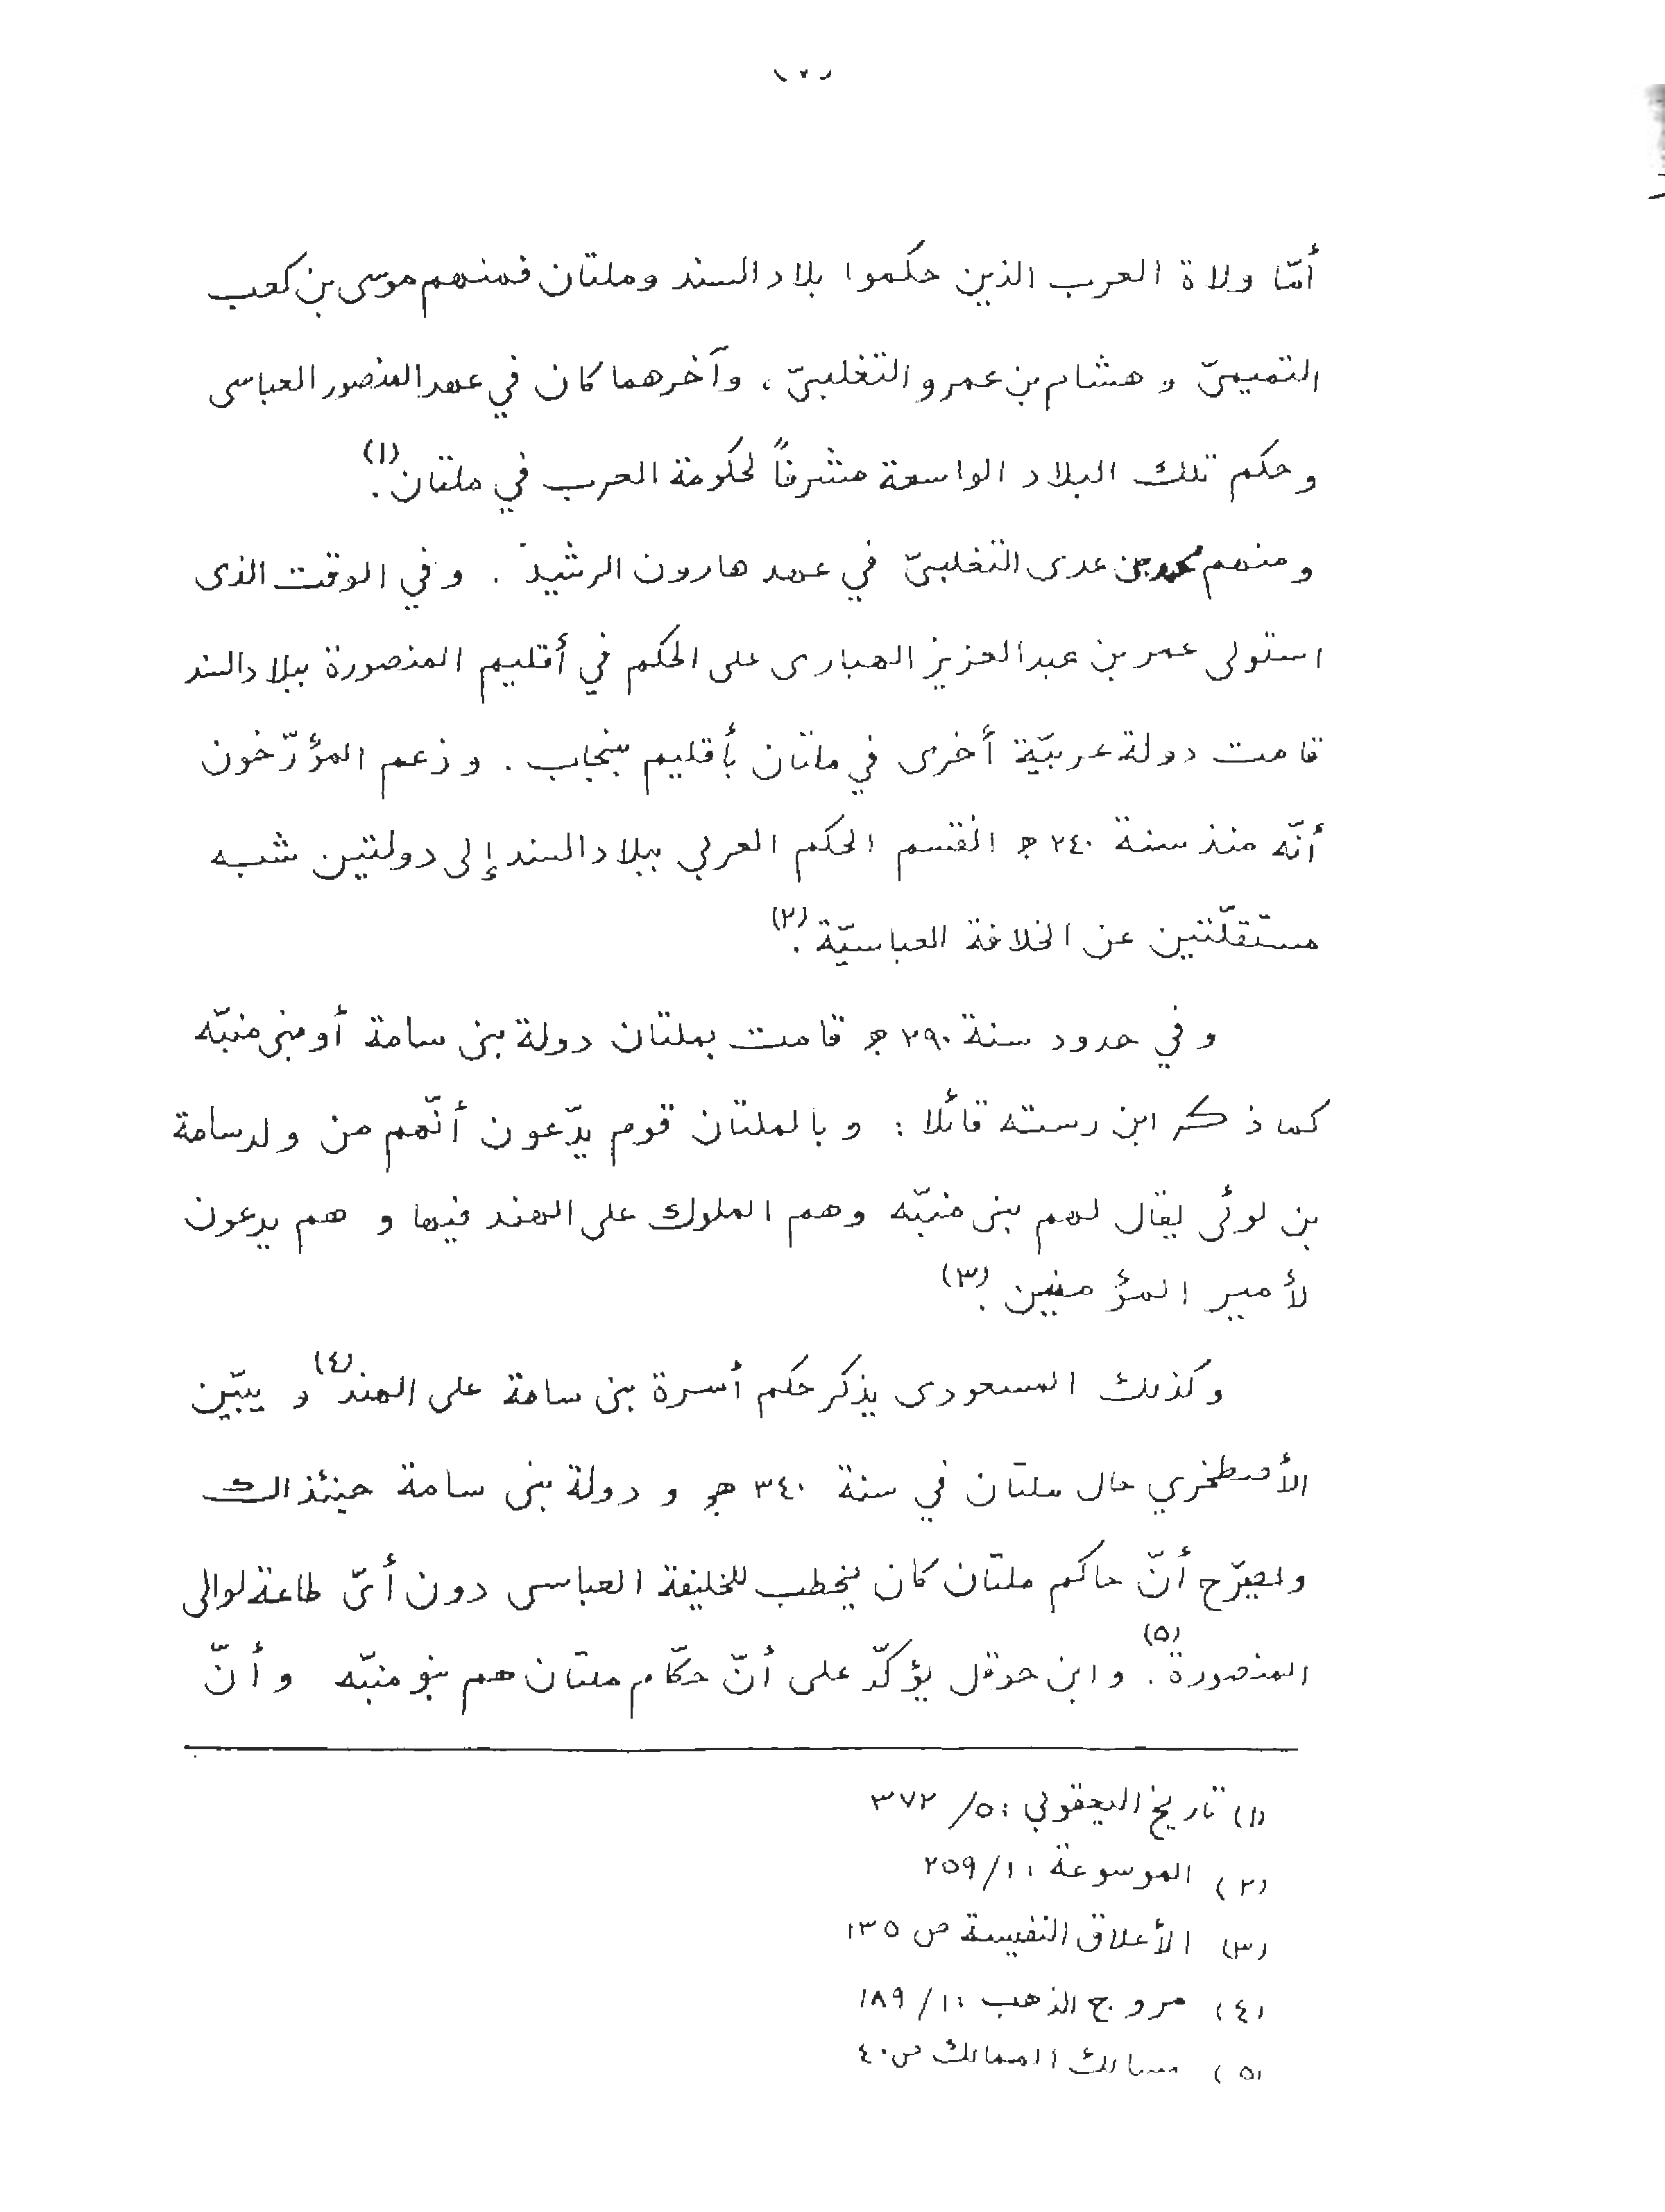 أمّا ولاة العرب الذين حكموا بلاد السند وملتان فمنهم موسى بن كعب
التميميّ و هشام بن عمرو التغلبيّ ، وآخرهما كان في عهد المنصور العباسى
وحكم تلك البلاد الواسعة مشرفاً لحكومة العرب في ملتان (١).
ومنهم محمد بن عدى التغلبيّ في عهد هارون الرشيد . وفي الوقت الذى
استولى عمر بن عبد العزيز الهبارى على الحكم في أقليم المنصورة ببلاد السند
قامت دولة عربيّة أخرى في ملتان بأقليم بنجاب . وزعم المؤرّخون
أنّه منذ سنة ٢٤٠ هـ انقسم الحكم العربي ببلاد السند إلى دولتين شبه
مستقلّتين عن الخلافة العباسيّة (٢).
وفي حدود سنة ٢٩٠ هـ قامت بملتان دولة بنى سامة أو بنى منبّه
كما ذكر ابن رسته قائلا : وبالملتان قوم يدّعون أنّهم من ولد سامة
بن لوئى يقال لهم بنى منبّه وهم الملوك على الهند فيها و هم يدعون
لأمير المؤمنين (٣).
وكذلك المسعودى يذكر حكم أسرة بنى سامة على الهند (٤) و يبيّن
الأصطخري حال ملتان في سنة ٣٤٠ هـ و دولة بنى سامة حينئذاك
ويصرّح أنّ حاكم ملتان كان يخطب للخليفة العباسى دون أىّ طاعة لوالى
المنصورة (٥). وابن حوقل يؤكّد على أنّ حكّام ملتان هم بنو منبّه وأنّ
(١) تاريخ اليعقوبي : ٥/ ٣٧٢
(٢) الموسوعة : ١/ ٢٥٩
(٣) الأعلاق النفيسة ص ١٣٥
(٤) مروج الذهب : ١/ ١٨٩
(٥) مسالك الممالك ص ٤٠